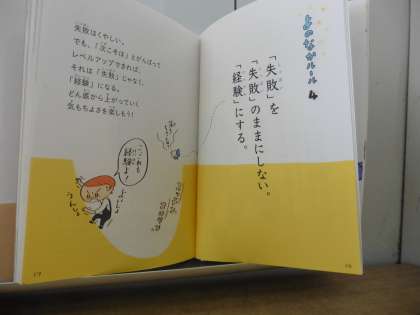 よのなかルール
4
「失敗」を
「失敗」のままにしない。
「経験」にする。
失敗はくやしい。
でも、「次こそは」とがんばって
レベルアップできれば、
それは「失敗」じゃなく、
「経験」になる。
どん底から上がっていく、
気もちよさを楽しもう!
これも
経験よ!
よいしょ
うんしょ